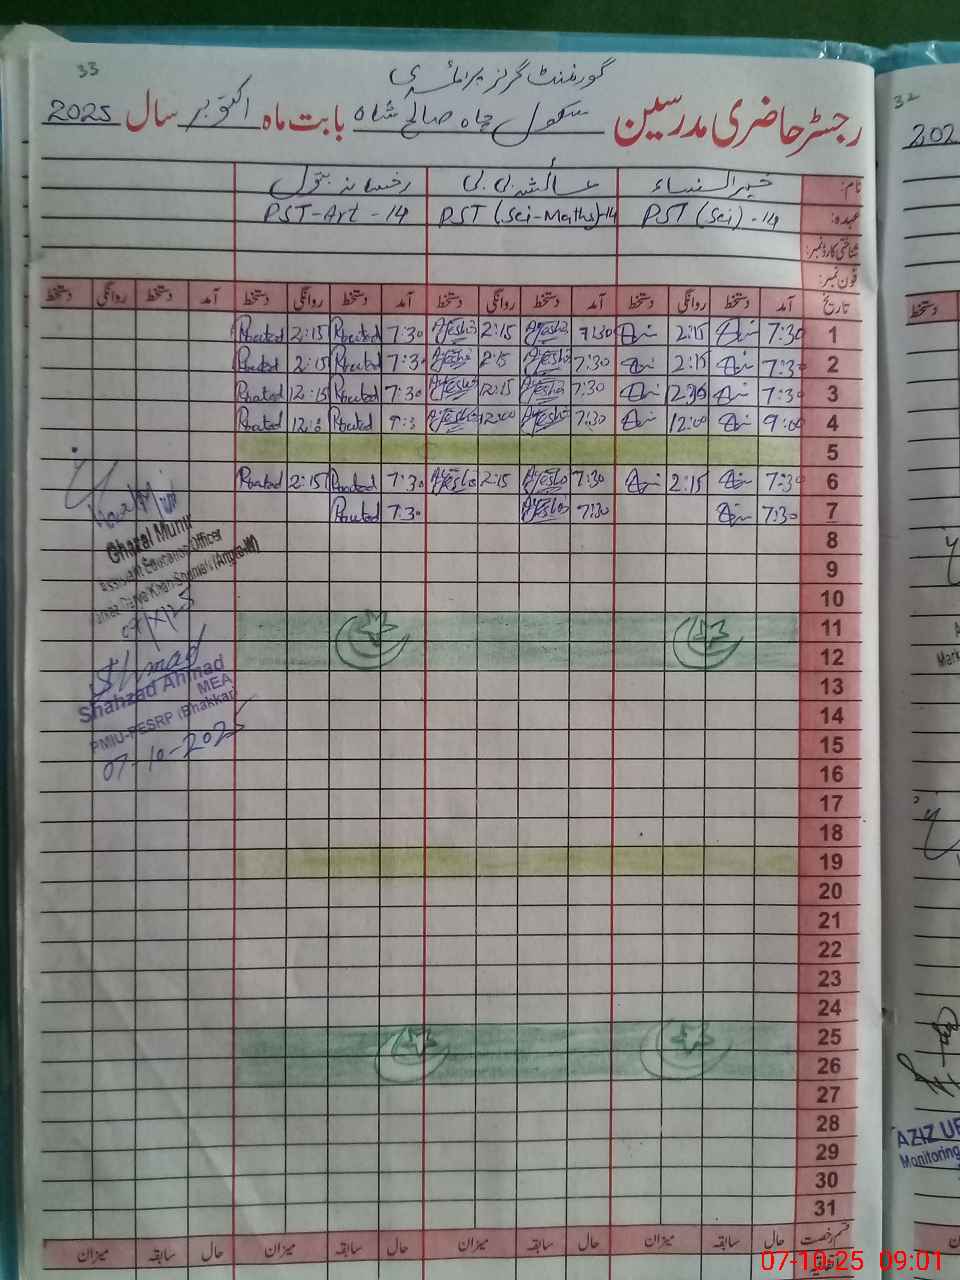 33
گورنمنٹ گرلز پرائمری
رجسٹر حاضری مدرسین سکول چاہ صالح شاہ بابت ماہ اکتوبر سال 2025
نام: خیرالنساء عائشہ بی بی رخسانہ بتول
عہدہ: PST (Sci) - 14 PST (Sci-Maths)-14 PST-Art - 14
شناختی کارڈ نمبر:
فون نمبر:
تاریخ آمد دستخط روانگی دستخط آمد دستخط روانگی دستخط آمد دستخط روانگی دستخط آمد دستخط روانگی دستخط
1 7:30 2:15 7:30 Ayesha 2:15 Ayesha 7:30 2:15
2 7:30 2:15 7:30 Ayesha 2:15 Ayesha 7:30 2:15
3 7:30 7:30 Ayesha 12:15 Ayesha 7:30 12:15
4 9:00 12:00 7:30 Ayesha 12:00 Ayesha
5
6 7:30 2:15 7:30 Ayesha 2:15 Ayesha 7:30 2:15
7 7:30 7:30 Ayesha 7:30
8
9
10
11
12
13
14
15
16
17
18
19
20
21
22
23
24
25
26
27
28
29
30
31
Ghazal Munir
Assistant Education Officer
Shahzad Ahmad
MEA
PMIU-PESRP (Bhakkar)
07-10-2025
قسم رخصت حال سابقہ میزان حال سابقہ میزان حال سابقہ میزان حال سابقہ میزان
اتفاقیہ
32
202
دستخط
AZIZ UR
Monitoring
07-10-25 09:01